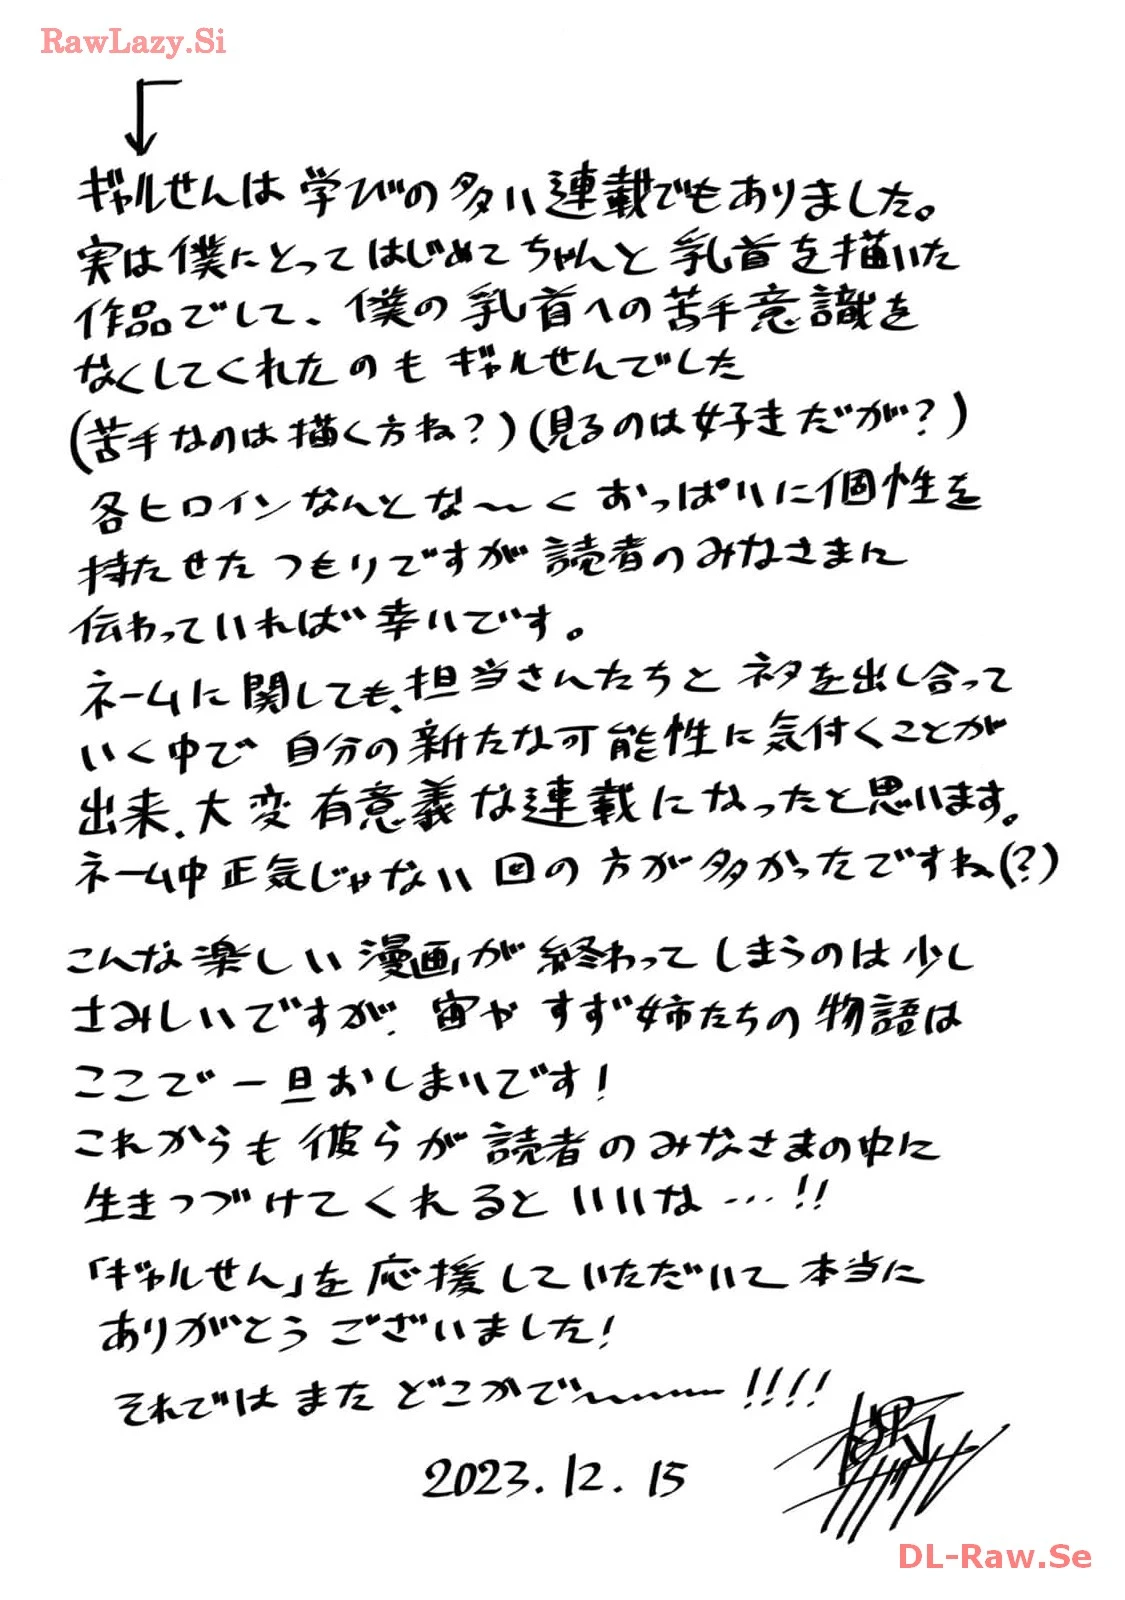 RawLazy.Si
ギャルせんは学びの多い連載でもありました。
実は僕にとってはじめてちゃんと乳首を描いた
作品でして、僕の乳首への苦手意識を
なくしてくれたのもギャルせんでした
(苦手なのは描く方ね?)(見るのは好きだが?)
各ヒロインなんとな〜くおっぱいに個性を
持たせたつもりですが読者のみなさまに
伝わっていれば幸いです。
ネームに関しても、担当さんたちとネタを出し合って
いく中で自分の新たな可能性に気付くことが
出来、大変有意義な連載になったと思います。
ネーム中正気じゃない回の方が多かったですね(?)
こんな楽しい漫画が終わってしまうのは少し
さみしいですが、宙やすず姉たちの物語は
ここで一旦おしまいです!
これからも彼らが読者のみなさまの中に
生きつづけてくれるといいな…!!
「ギャルせん」を応援していただいて本当に
ありがとうございました!
それではまたどこかで〜〜〜!!!!
2023.12.15
DL-Raw.Se